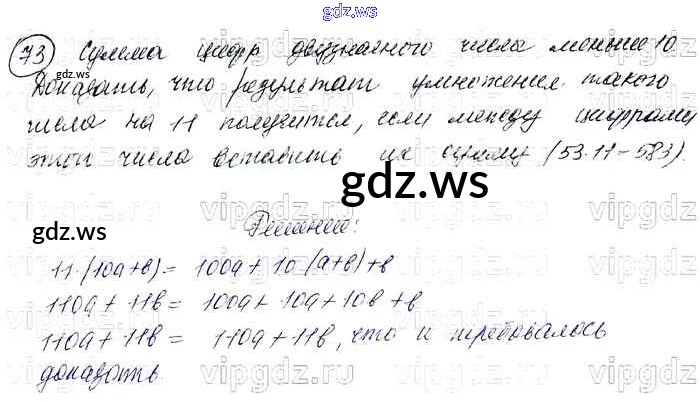 gdz.ws
73 Сумма цифр двузначного числа меньше 10.
Доказать, что результат умножения такого
числа на 11 получится, если между цифрами
этого числа вставить их сумму (53·11-583).
gdz.ws
Решение:
11·(10a+b)= 100a+10·(a+b)+b
110a+11b= 100a+10a+10b+b
110a+11b= 110a+11b, что и требовалось
доказать.
gdz.ws
gdz.ws
gdz.ws
vipgdz.ru
vipgdz.ru
vipgdz.ru
vipgdz.ru